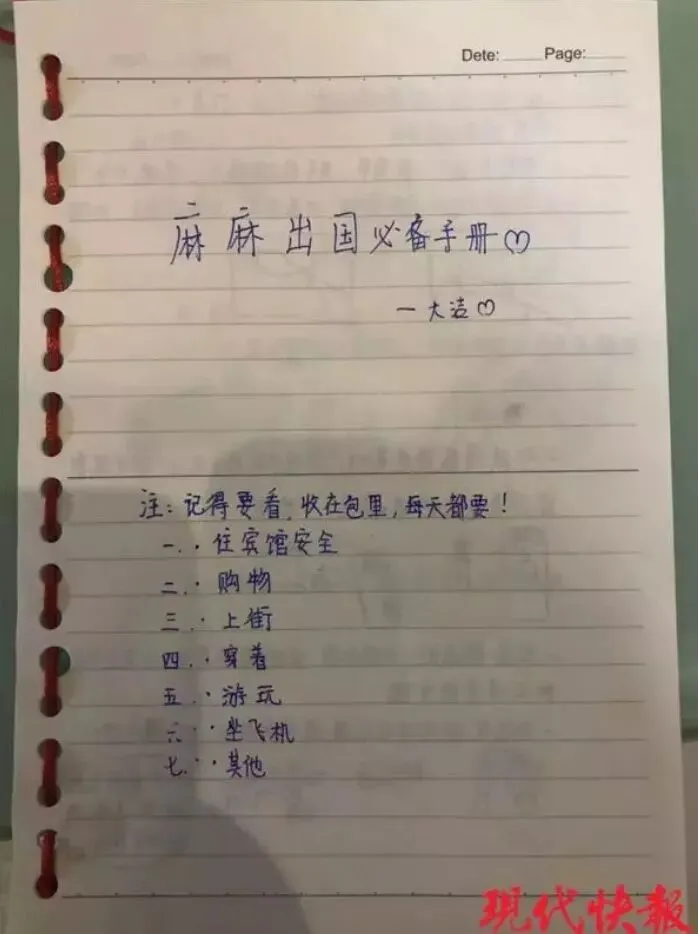 Dete:____ Page:____
麻麻出国必备手册♡
—大洁♡
注:记得要看,收在包里,每天都要!
一.·住宾馆安全
二.·购物
三.·上街
四.·穿着
五.·游玩
六.·坐飞机
七.·其他
现代快报